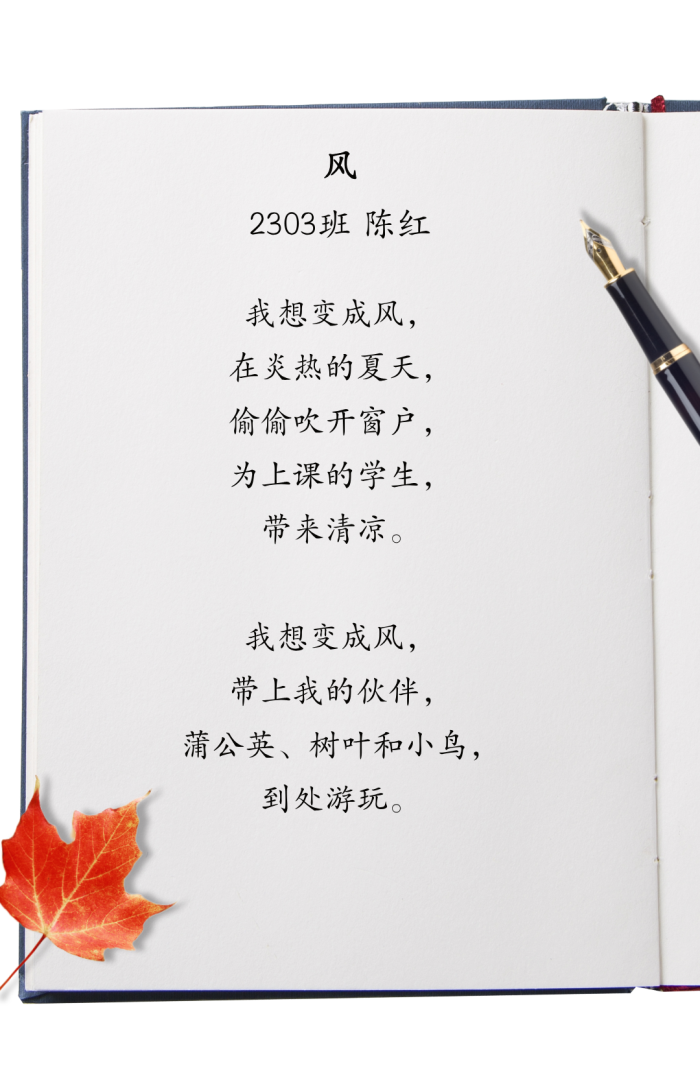 风
2303班 陈红
我想变成风，
在炎热的夏天，
偷偷吹开窗户，
为上课的学生，
带来清凉。
我想变成风，
带上我的伙伴，
蒲公英、树叶和小鸟，
到处游玩。